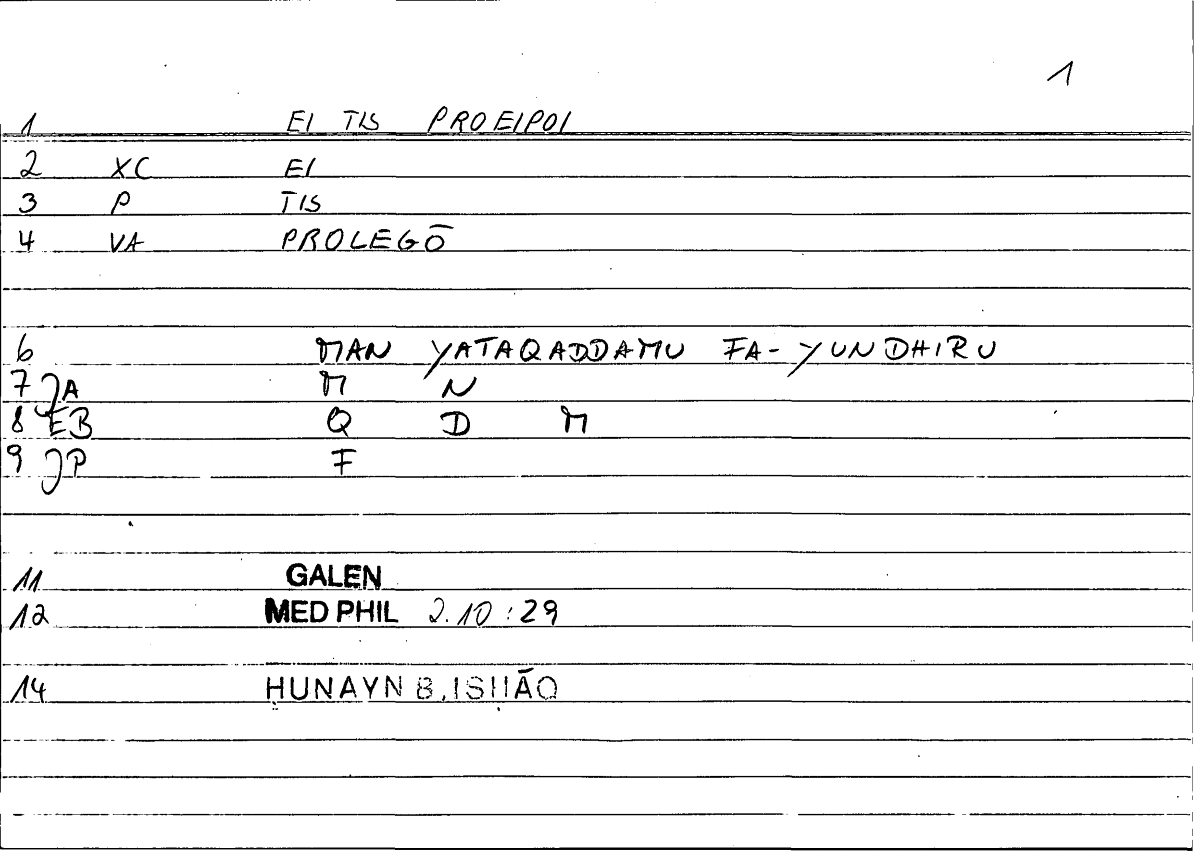 1
1 EI TIS PROEIPOI
2 XC EI
3 P TIS
4 VA PROLEGŌ
6 MAN YATAQADDAMU FA- YUNDHIRU
7 JA M N
8 EB Q D M
9 JP F
11 GALEN
12 MED PHIL 2.10:29
14 HUNAYN B. ISḤĀQ